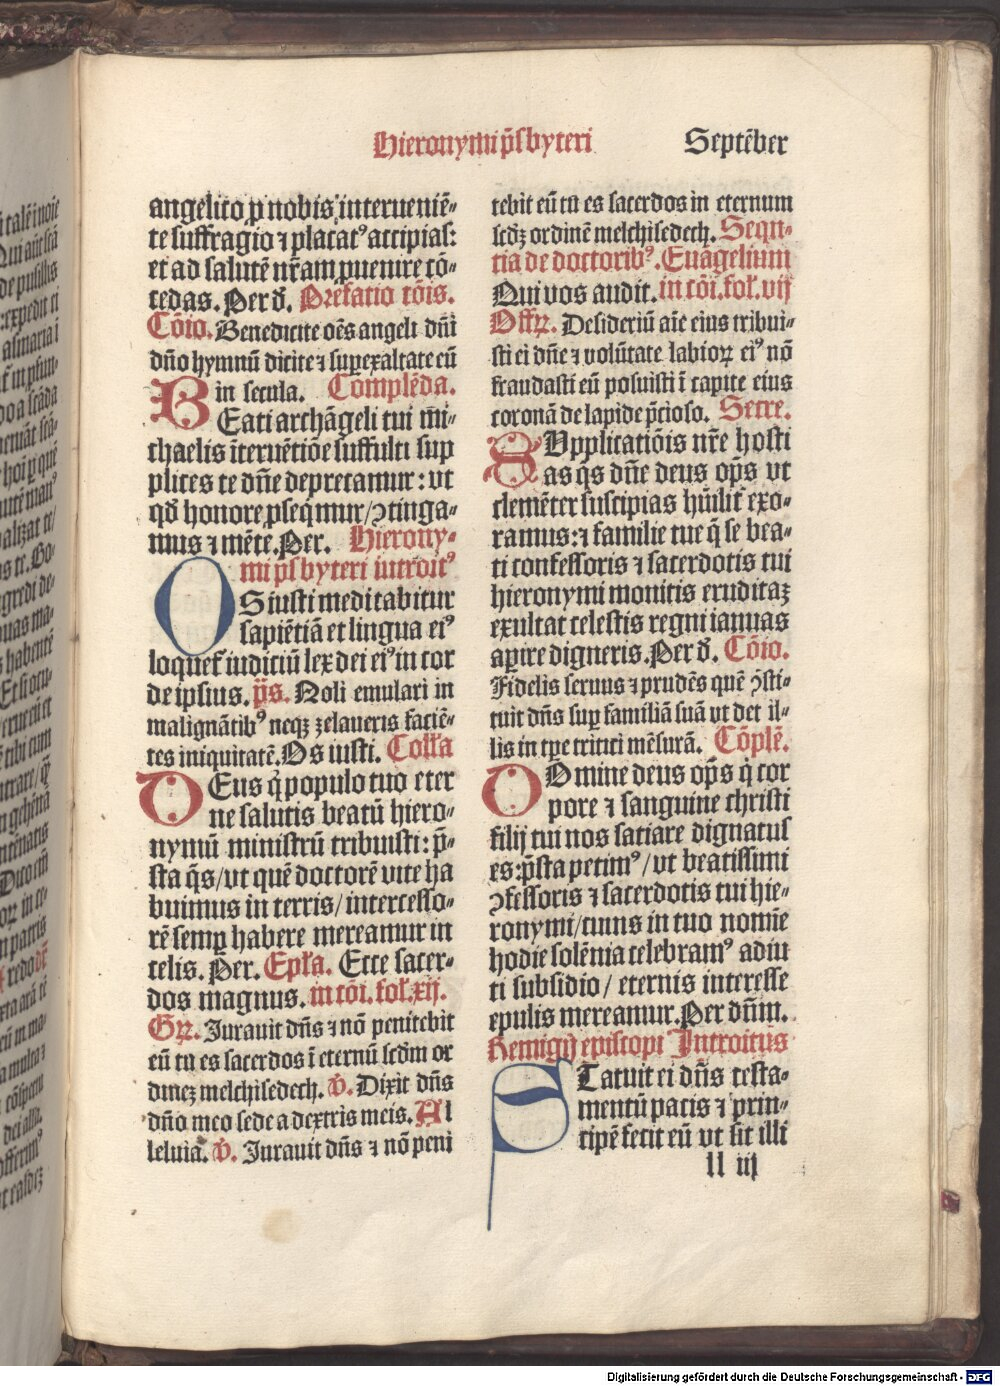 Hieronymi p̄sbyteri Septēber
angelico ꝓ nobis interueniē⸗
te suffragio ⁊ placatꝰ accipias:
et ad salutē nr̄am ꝑuenire cō⸗
cedas. Per d̄. Prefatio cōis.
Cōio. Benedicite oēs angeli dn̄i
dn̄o hymnū dicite ⁊ suꝑexaltate eū
in secula. Complēda.
BEati archāgeli tui mi⸗
chaelis īteruētiōe suffulti sup
plices te dn̄e deprecamur: vt
qd̄ honore ꝓseq̄mur/ ↄtinga⸗
mus ⁊ mēte. Per. Hierony⸗
mi p̄sbyteri introitꝰ
OS iusti meditabitur
sapiētiā et lingua eiꝰ
loquet᷑ iudiciū lex dei eiꝰ in cor
de ipsius. p̄s. Noli emulari in
malignātibꝰ neqꝫ zelaueris faciē⸗
tes iniquitatē. Os iusti. Coll̄a
DEus q̄ populo tuo eter
ne salutis beatū hiero⸗
nymū ministrū tribuisti: p̄⸗
sta q̄s/ vt quē doctorē vite ha
buimus in terris/ intercesso⸗
rē semꝑ habere mereamur in
celis. Per. Ep̄la. Ecce sacer⸗
dos magnus. in cōi. fol̄. xij.
Gꝝ. Iurauit dn̄s ⁊ nō penitebit
eū tu es sacerdos ī eternū scd̄m or
dinez melchisedech. v̄. Dixit dn̄s
dn̄o meo sede a dextris meis. Al
leluia. v̄. Iurauit dn̄s ⁊ nō peni
tebit eū tu es sacerdos in eternum
scd̄ꝫ ordinē melchisedech. Sequē⸗
tia de doctoribꝰ. Euāgelium
Qui vos audit. in cōi. fol̄. vij
Offꝝ. Desideriū aīe eius tribui⸗
sti ei dn̄e ⁊ volūtate labioꝝ eiꝰ nō
fraudasti eū posuisti ī capite eius
coronā de lapide p̄cioso. Secre.
SUpplicatiōis nr̄e hosti
as q̄s dn̄e deus op̄s vt
clemēter suscipias hūilit᷑ exo⸗
ramus: ⁊ familie tue q̄ se bea⸗
ti confessoris ⁊ sacerdotis tui
hieronymi monitis eruditaꝫ
exultat celestis regni ianuas
aperire digneris. Per d̄. Cōio.
Fidelis seruus ⁊ prudēs quē ꝯsti⸗
tuit dn̄s suꝑ familiā suā vt det il⸗
lis in tp̄e tritici mēsurā. Cōplē.
DOmine deus op̄s q̇ cor
pore ⁊ sanguine christi
filij tui nos satiare dignatus
es: p̄sta petimꝰ/ vt beatissimi
ↄfessoris ⁊ sacerdotis tui hie⸗
ronymi/ cuius in tuo nomīe
hodie solēnia celebramꝰ adiu
ti subsidio/ eternis interesse
epulis mereamur. Per dn̄m.
Remigij episcopi Introitus
STatuit ei dn̄s testa⸗
mentū pacis ⁊ prin⸗
cipē fecit eū vt sit illi
ll iij
Digitalisierung gefördert durch die Deutsche Forschungsgemeinschaft - DFG